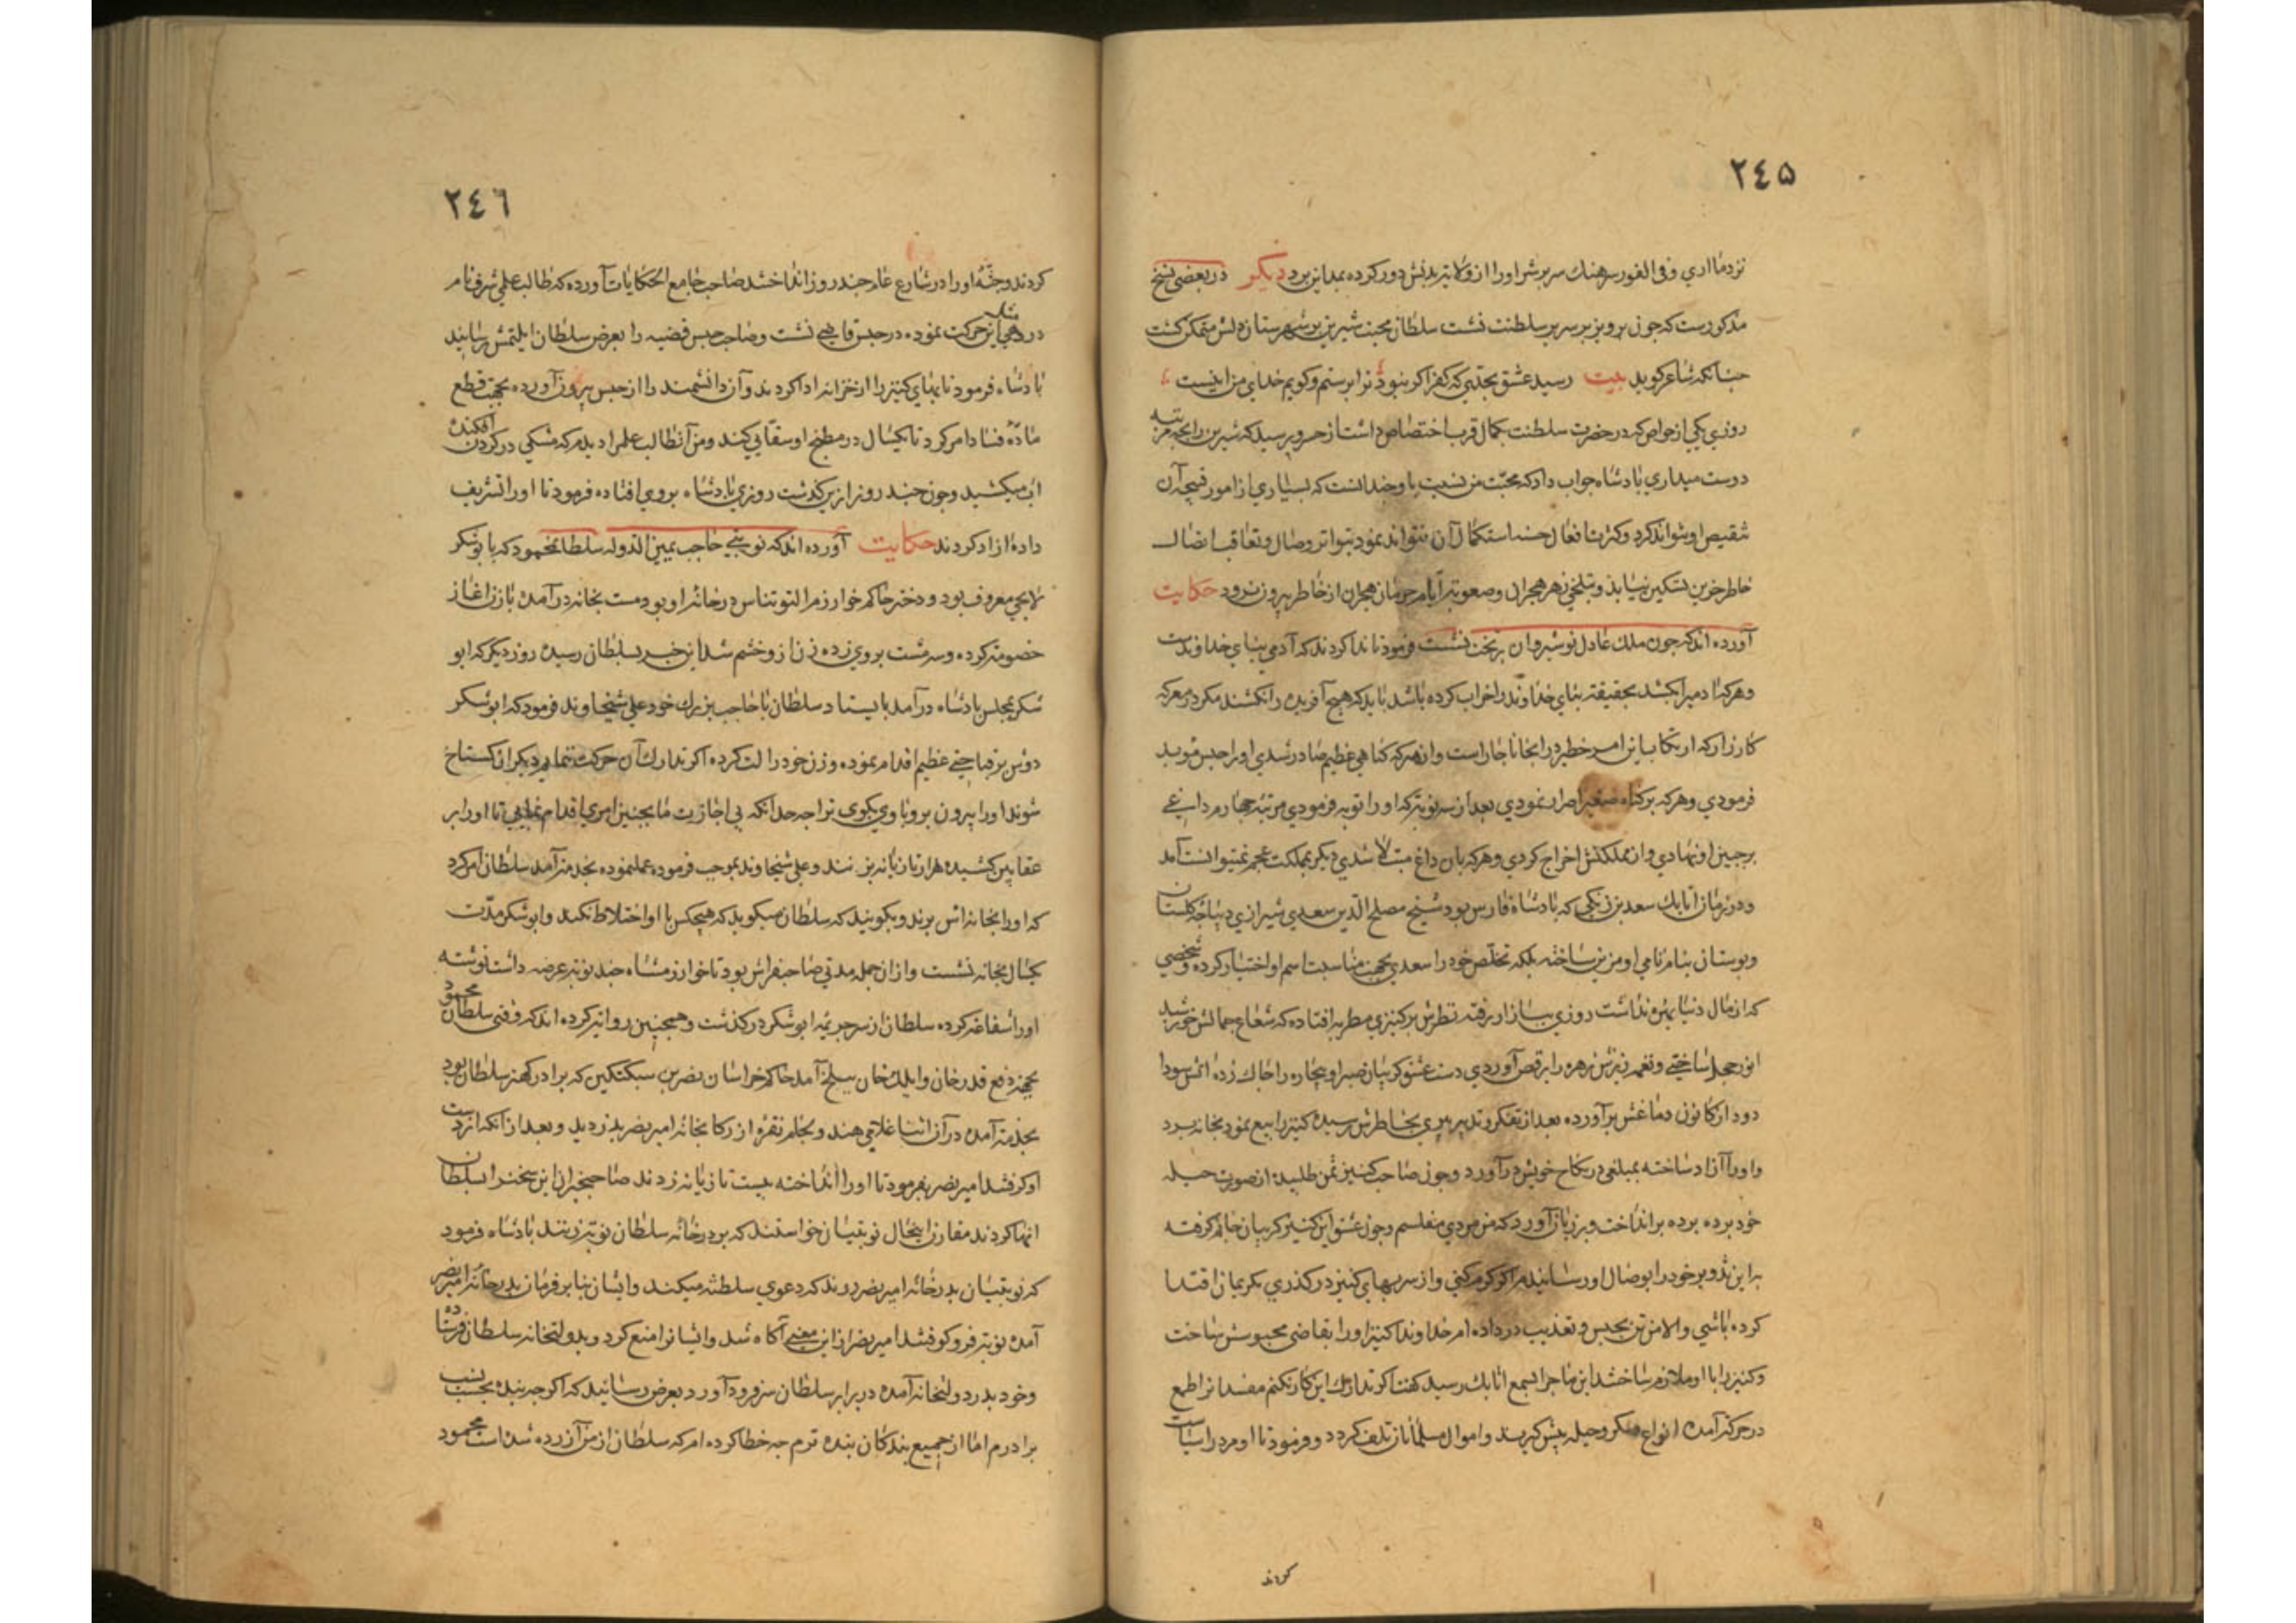 ٢٤٥
نزد ما آری و فی الفور سرهنك سر بشر او را از ولایت بدنش دور کرده بمداین برد دیکر در بعضی نسخ
مذکورست که چون پرویز بر سریر سلطنت نشست سلطان محبت شیرین بر شهرستان دلش متمکن کشت
چنانکه شاعر کوید بیت رسید عشق بجایی که کفر اکر نبود ترا پرستم و کویم خدای من اینست
روزی یکی از خواص که در حضرت سلطنت بکمال قرب اختصاص داشت از خسرو پرسید که شیرین را بچه مرتبه
دوست میداری پادشاه جواب داد که محبت من نسبت باو چندانست که بسیاری از امور قبیحه آن
تنقیص او نتواند کرد و کثرت افعال حسنه استکمال آن نتواند نمود بتواتر وصال و تعاقب اتصال
خاطر حزین تسکین نیابد و بتلخی زهر هجران و صعوبت ایام حرمان هجران از خاطر بیرون نرود حکایت
آورده اند که چون ملك عادل نوشیروان بر تخت نشست فرمود تا ندا کردند که آدمی بنای خداوندست
و هر که آدمی را بکشد بحقیقت بنای خداوند را خراب کرده باشد باید که هیچ آفریده را نکشند مکر در معرکه
کارزار که ارتکاب این امر خطیر در انجا ناچار است و از هر که کناهی عظیم صادر شدی او را حبس موبد
فرمودی و هر که بر کناه صغیر اصرار نمودی بعد از سه نوبت که او را توبه فرمودی مرتبه چهارم داغی
بر جبین او نهادی و از مملکتش اخراج کردی و هر که بان داغ مبتلا شدی دیکر بمملکت عجم نمیتوانست آمد
و در زمان اتابك سعد بن زنکی که پادشاه فارس بود شیخ مصلح الدین سعدی شیرازی دیباجه کلستان
و بوستان بنام نامی او مزین ساخته بلکه تخلص خود را سعدی بجهت مناسبت اسم او اختیار کرده و شخصی
که از مال دنیا بهره نداشت روزی ببازار رفته نظرش بر کنیزی مطربه افتاده که شعاع جمالش خورشید
انور خجل ساختی و نغمه زیرش زهره را برقص آوردی دست عشق کریبان صبر او بیچاره را چاك زده آتش سودا
دود از کانون دماغش برآورده بعد از تفکر و تدبیر بخاطرش رسیده کنیز را بیع نمود بخانه برد
و او را آزاد ساخته بمبلغی در نکاح خویش درآورد و چون صاحب کنیز ثمن طلبید از صورت حیله
خود برده پرده برانداخت و بر زبان آورد که من مردی مفلسم و چون عشق این کنیز کریبان جانم کرفته
باین تزویر خود را بوصال او رسانیدم اکر کرم کنی و از سر بهای کنیز درکذری بکریمان اقتدا
کرده باشی و الا من تن بحبس و تعذیب درداده ام خداوند کنیز او را بقاضی محبوس ساخت
و کنیز را با او ملازم ساختند این ماجرا بسمع اتابك رسید کفت اکر تدارك این کار نکنم مفسدانرا طمع
در حرکت آمده انواع مکر و حیله پیش کیرند و اموال مسلمانان تلف کردد و فرمود تا او مرد را سیاست
کردند
٢٤٦
کردند و جثه او را در شارع عام چند روز انداختند صاحب جامع الحکایات آورده که طالب علمی شرف نام
در دهلی مثل این حرکت نموده در حبس قاضی نشست و صاحب حبس قضیه را بعرض سلطان ایلتمش رسانید
پادشاه فرمود تا بهای کنیز را از خزانه ادا کردند و آن دانشمند را از حبس بیرون آورده بجهت قطع
ماده فساد امر کرد تا یکسال در مطبخ او سقایی کند و من آن طالب علم را دیدم که مشکی در کردن افکنده
آب میکشید و چون چند روز ازین کذشت روزی پادشاه بروی افتاده فرمود تا او را تشریف
داده آزاد کردند حکایت آورده اند که نوبتی حاجب یمین الدوله سلطان محمود که بابوشکر
لایحی معروف بود و دختر حاکم خوارزم التونتاش در خانه او بود مست بخانه درآمده با زن آغاز
خصومت کرده و سه مشت بروی زده زن ازو خشم شد این خبر بسلطان رسیده روز دیکر که ابو
شکر بمجلس پادشاه درآمد بایستاد سلطان با حاجب بزرك خود علی شنجاوند فرمود که ابوشکر
دوش بر قباحتی عظیم اقدام نموده و زن خود را لت کرده اکر تدارك آن حرکت ننمایم دیکران کستاخ
شوند او را بیرون بر و با وی بکوی ترا چه حد آنکه بی اجازت ما بچنین امری اقدام نمایی تا او را بر
عقابین کشیده هزار تازیانه بزنند و علی شنجاوند بموجب فرموده عمل نموده بخدمت آمد سلطان امر کرد
که او را بخانه اش برند و بکویند که سلطان میکوید که هیچکس با او اختلاط نکند و ابوشکر مدت
یکسال بخانه نشست و ازان جمله مدتی صاحب فراش بود تا خوارزمشاه چند نوبت عرضه داشت نوشته
او را شفاعت کرده سلطان از سر جریمه ابوشکر درکذشت و همچنین روایت کرده اند که وقتی سلطان محمود
بجهت دفع قدرخان و ایلك خان ببلخ آمد حاکم خراسان نصر بن سبکتکین که برادر کهتر سلطان بود
بخدمت آمده در آن اثنا غلامی هندو بجام نقره از رکابخانه امیر نصر بدزدید و بعد از آنکه از دست
او کرفتند امیر نصر بفرمود تا او را انداخته بیست تازیانه زدند صاحب خبران این سخن را بسلطان
انها کردند مقارن اینحال نوبتیان خواستند که بر درخانه سلطان نوبت زنند پادشاه فرمود
که نوبتیان بدرخانه امیر نصر روند که دعوی سلطنت میکند و ایشان بنا بر فرمان بدرخانه امیر نصر
آمده نوبت فروکوفتند امیر نصر ازین معنی آکاه شد و ایشانرا منع کرد و بدولتخانه سلطان فرستاده
و خود بدر دولتخانه آمده در برابر سلطان سر فرود آورد بعرض رسانید که اکر چه بنده بحسب نسب
برادرم اما از جمیع بندکان بنده ترم چه خطا کرده ام که سلطان از من آزرده شده است محمود